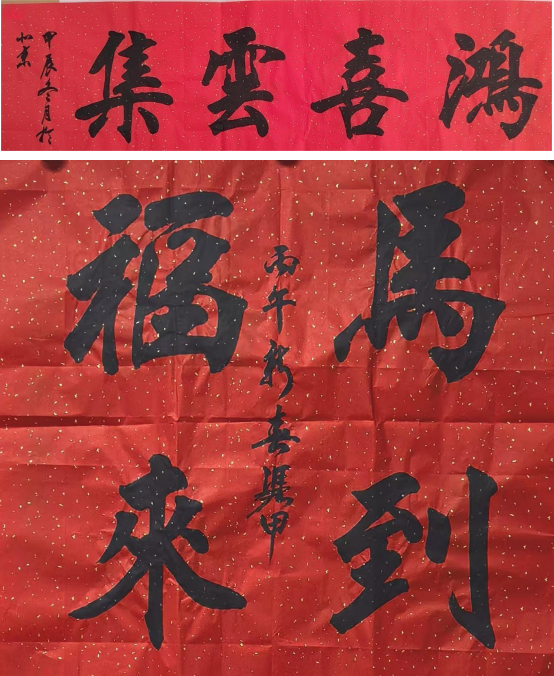 鴻喜雲集
甲辰冬月於
北京
馬到
丙午新春甲
福來